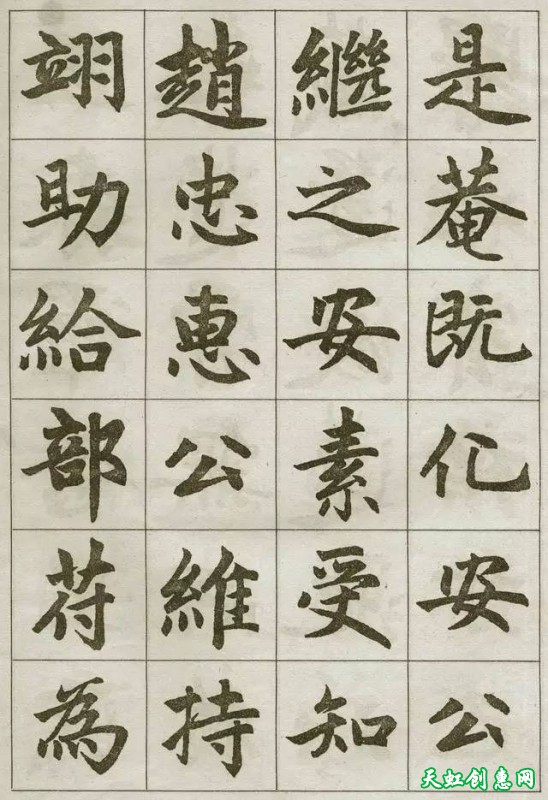 是菴既化安公
繼之安素受知
趙忠惠公維持
翊助給部苻為
天虹创惠网